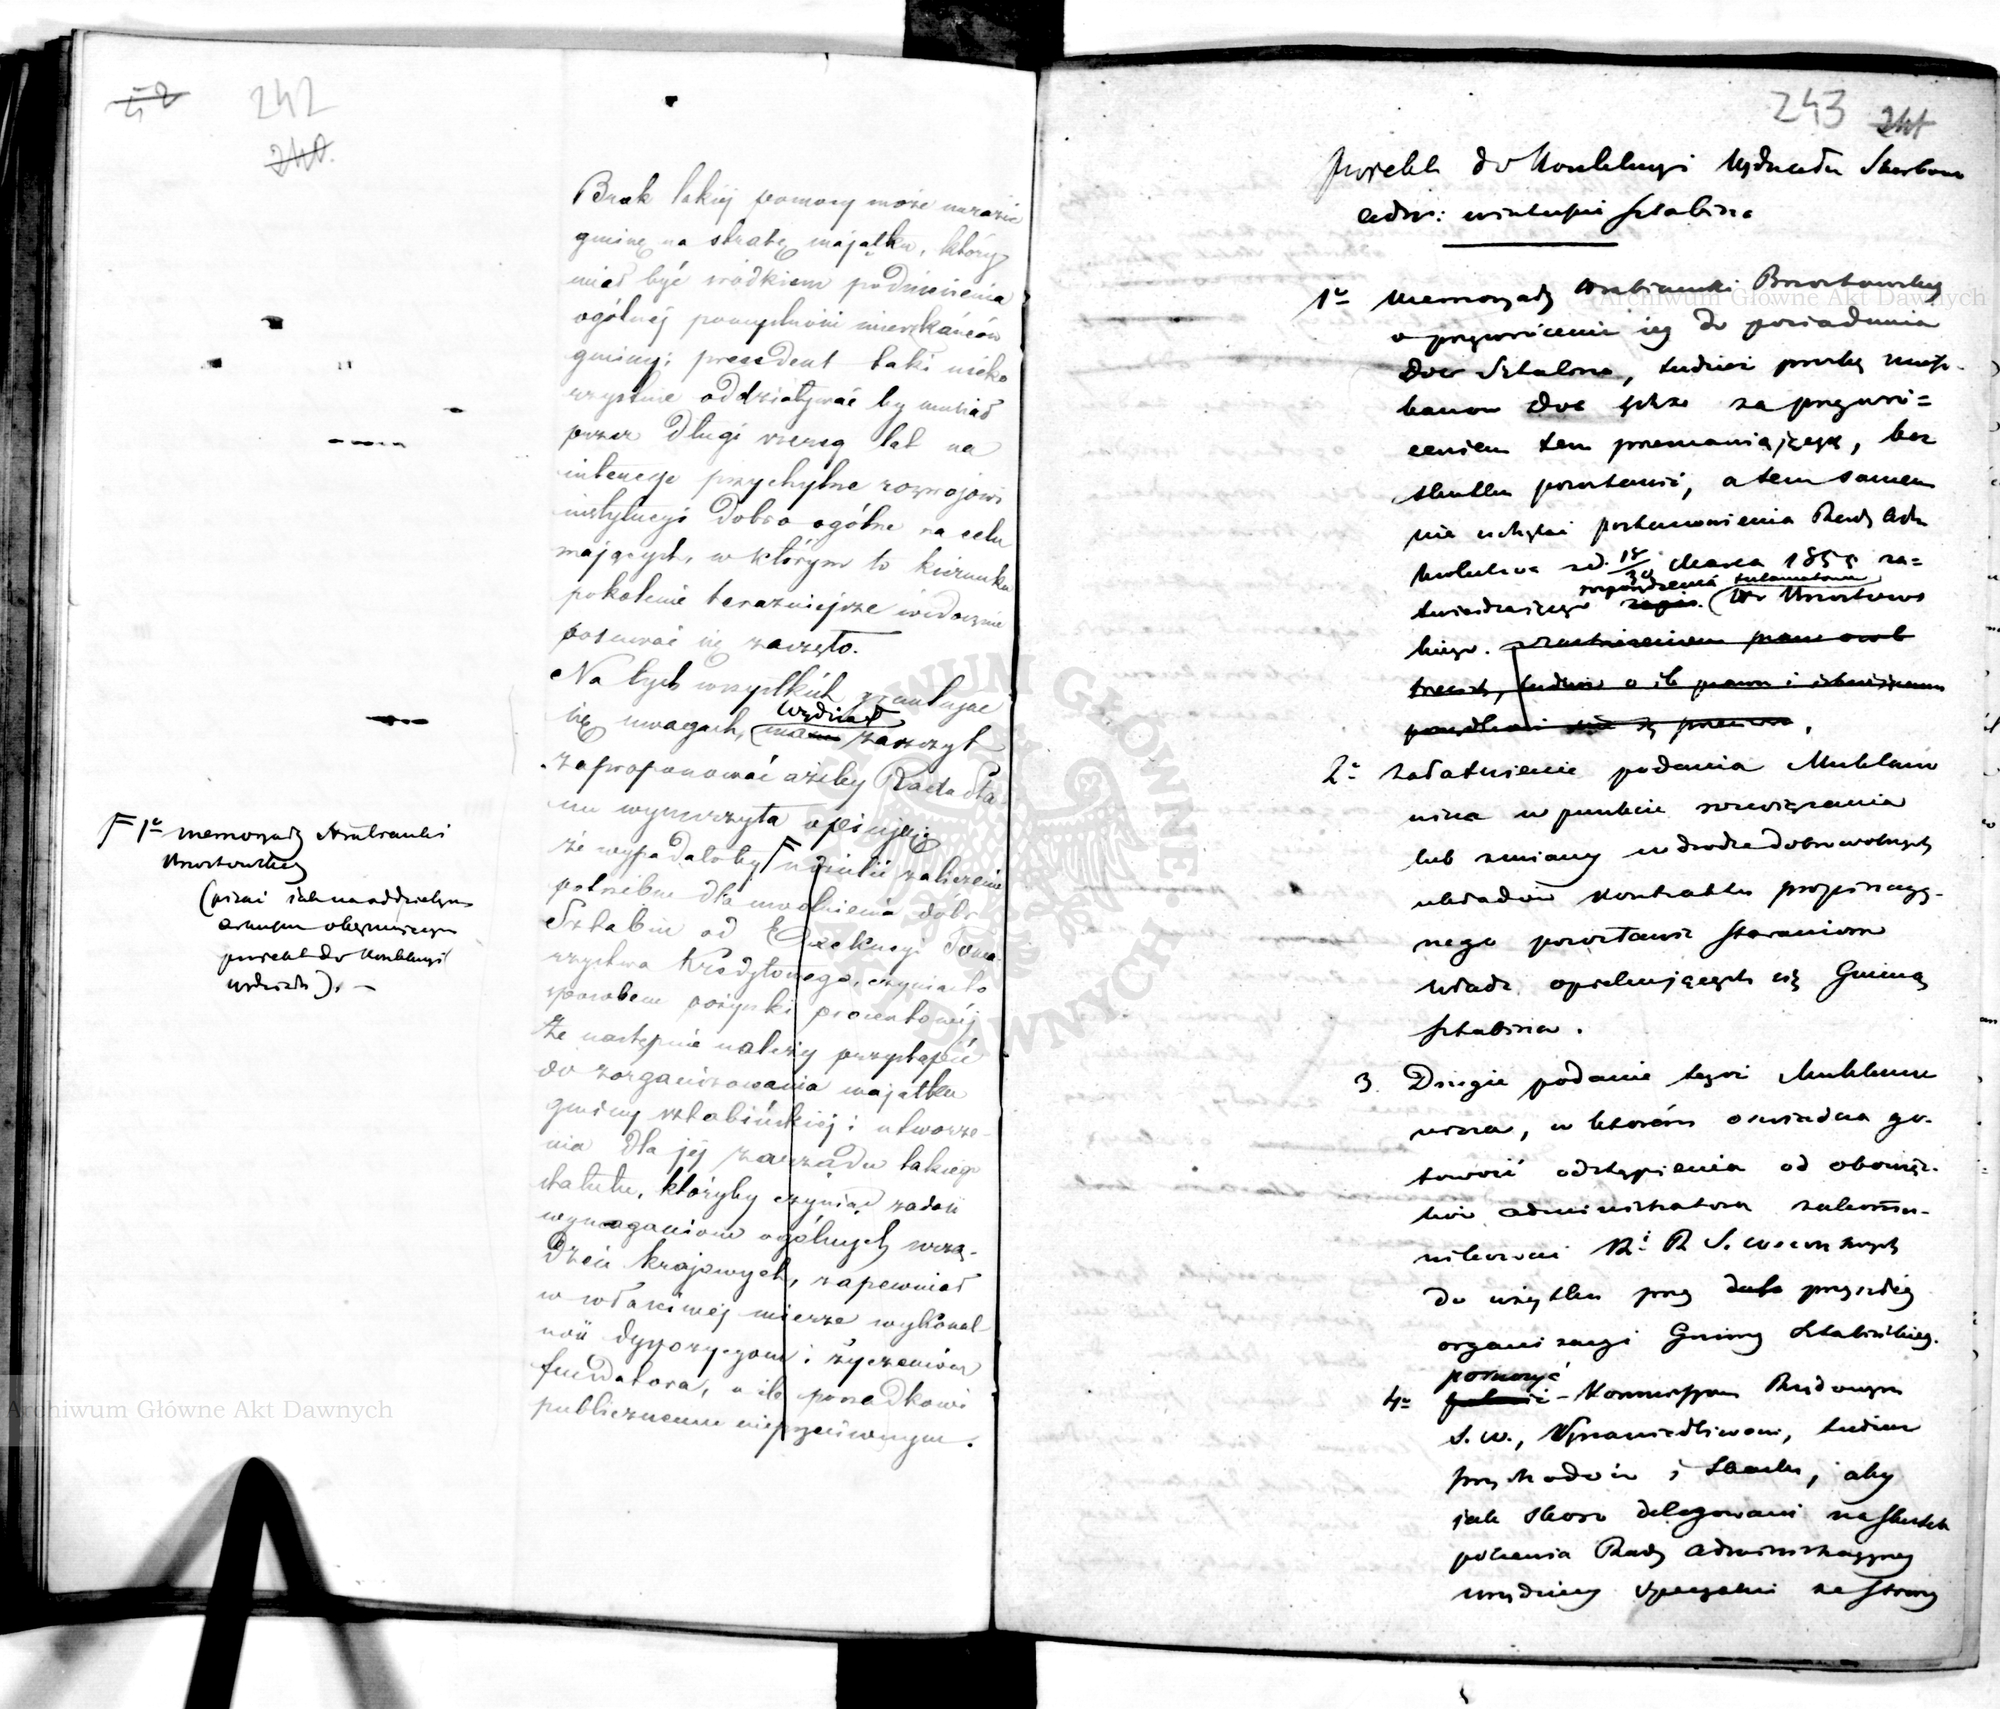 52
242
240.
Brak takiéj pomocy może narazić
gminę na stratę majątku, który
miał być środkiem podniesienia
ogólnéj pomyślności mieszkańców
gminy; precedent taki nieko
rzystnie oddziaływać by musiał
przez długi szereg lat na
intencje przychylne rozwojowi
instytucyi dobro ogólne na celu
mających, w którym to kierunku
pokolenie teraźniejsze widocznie
posuwać się zaczęło.
Na tych wszystkich gruntując
się uwagach, Wydział zaszczyt
zaproponować ażeby Rada Sta
nu wyrzekła opinję
że wypadałoby F udzielić zaliczenie
potrzebne dla uwolnienia dóbr
Sztabin od Exekucyi Towa
rzystwa Kredytowego, czyniąc to
sposobem pożyczki procentowéj
Że następnie należy przystąpić
do zorganizowania majątku
gminy sztabińskiéj i utworze-
nia dla jéj zarządu takiego
statutu, któryby czyniąc zadość
wymaganiom ogólnych urzą-
dzeń krajowych, zapewniał
w właściwéj mierze wykonal
ność dyspozycyom i życzeniom
fundatora, o ile porządkowi
publicznemu nieprzeciwnym.
F 1º memoryały Hrabianki
Brzostowskiéj
(pisać jak na oddzielnym
arkuszu obejmującym
projekt do Konkluzyi
Wydziału). –
243 241
Projekt do Konkluzyi Wydziału Skarbowo
adm: w interesie Sztabina
1º memoryały Hrabianki Brzostowskiéj
o przywróceniu jéj do posiadania
Dóbr Sztabina, tudzież prośbę miesz-
kańców dóbr tychże za przywró=
ceniem tem przemawiającą, bez
skutku pozostawić, a tem samem
nie uchylać postanowienia Rady Adm
Królestwa z d. 18/30 Marca 1855 za=
twierdzającego rozporządzenia testamentowe Hr Brzostows
kiego.
2º załatwienie podania Muklano
wicza w punkcie rozwiązania
lub zmiany w drodze dobrowolnych
układów kontraktu propinacyj-
nego pozostawić staraniom
władz opiekujących się Gminą
Sztabina.
3. Drugie podanie tegoż Muklano
wicza, w którém oświadcza go-
towość odstąpienia od obowiąz-
ków administratora zakommu-
nikować K. R. S. wewnętrznych
do użytku przy przyszłéj
organizacyi Gminy Sztabińskiéj.
4º poruczyć Kommissyom Rządowym
S. W., Sprawiedliwości, tudzież
Przychodów i Skarbu, aby
jak skoro delegowani na skutek
polecenia Rady Administracyjnéj
urzędnicy specyalni ze strony
Archiwum Główne Akt Dawnych
Archiwum Główne Akt Dawnych
ARCHIWUM GŁÓWNE AKT DAWNYCH